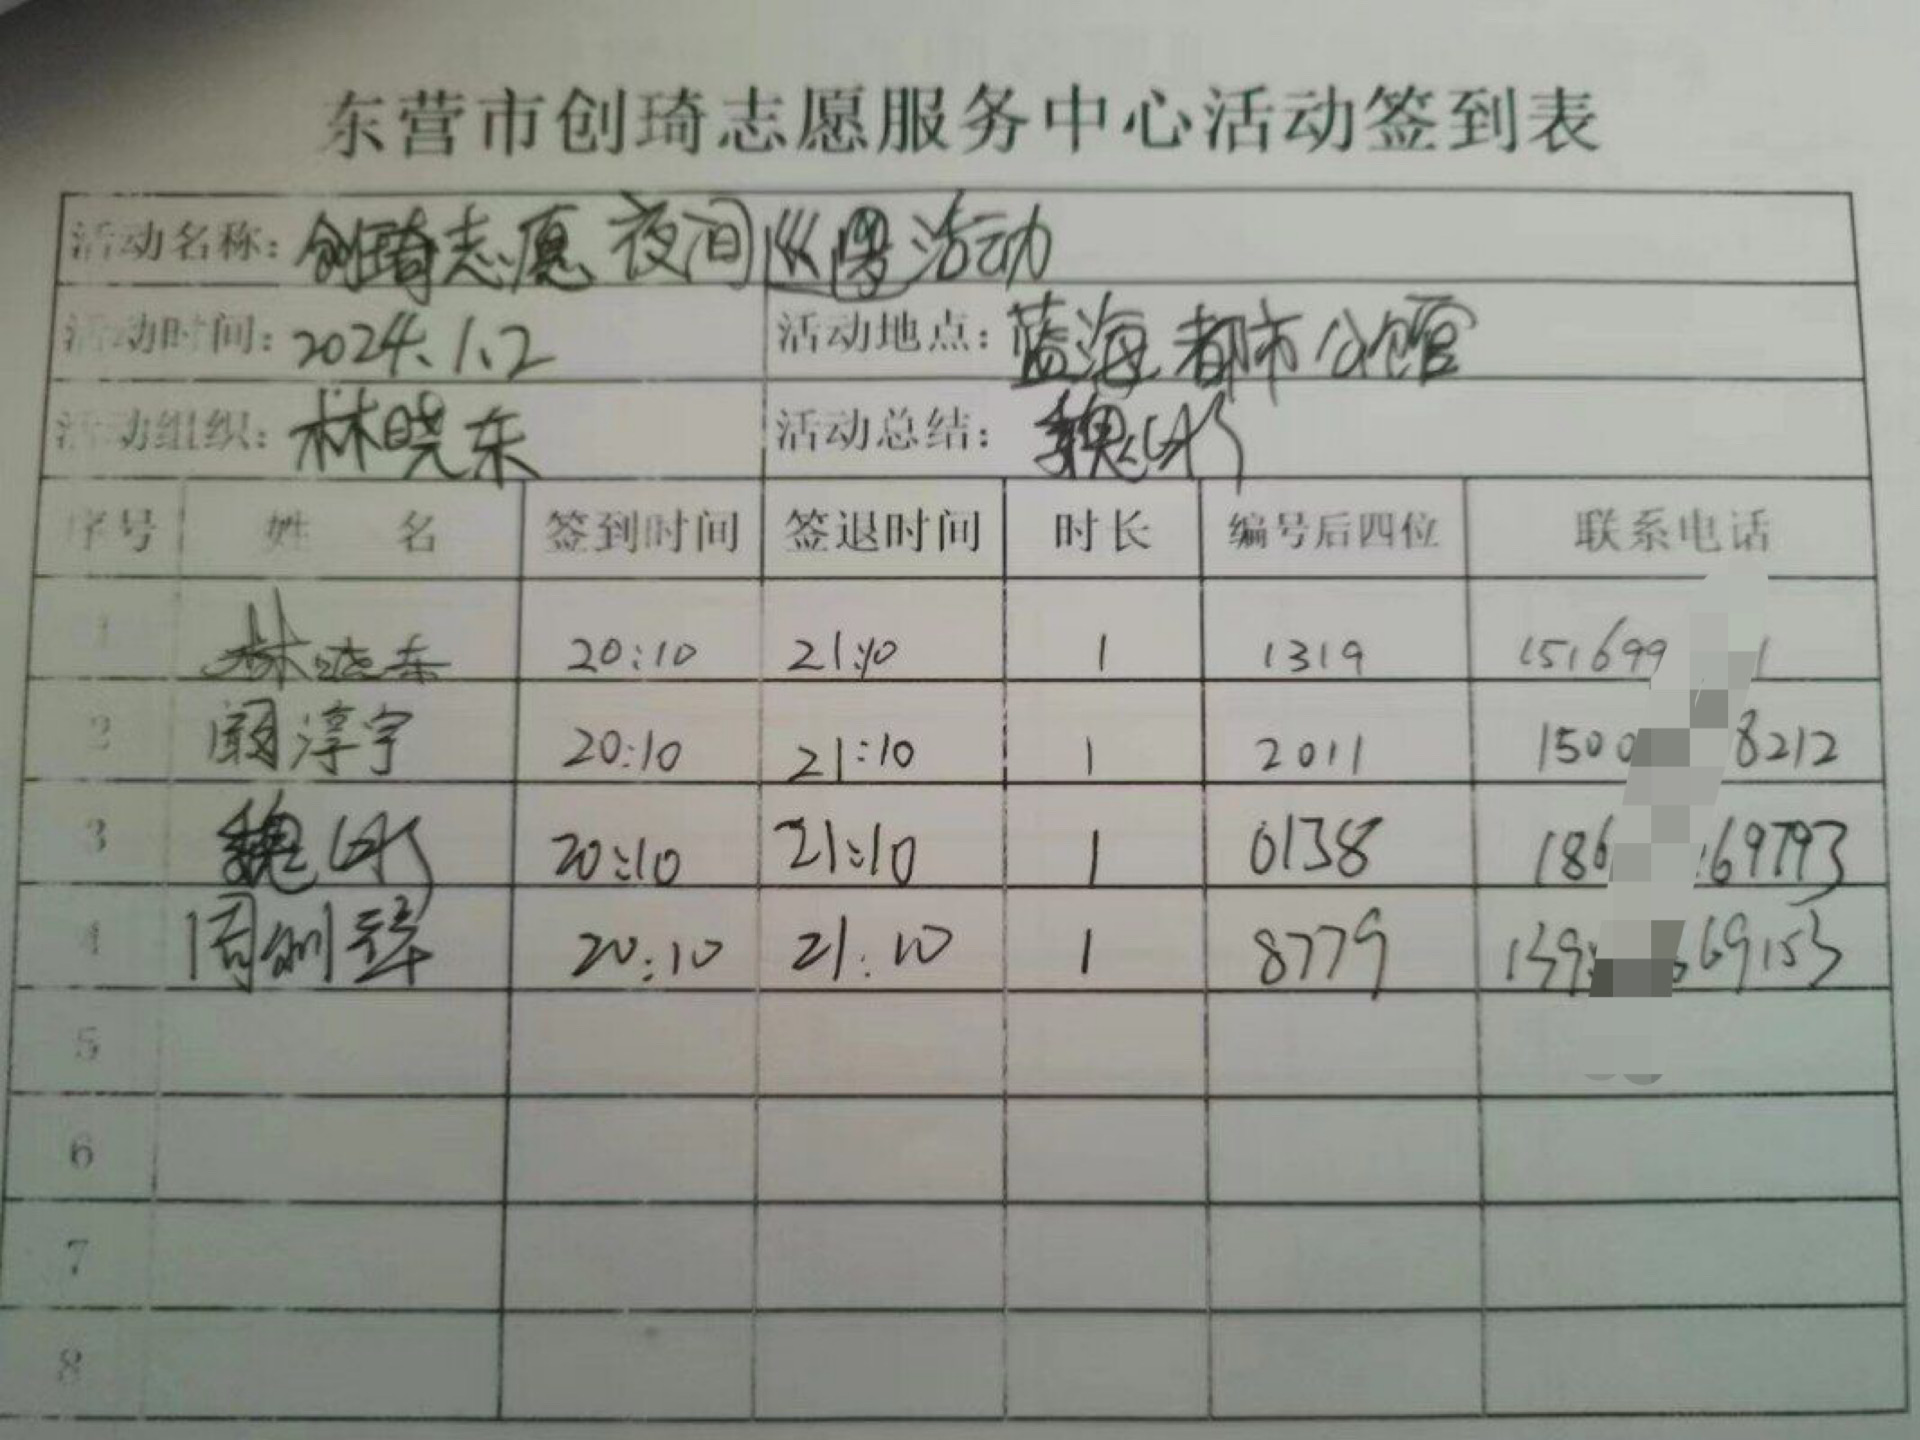 东营市创琦志愿服务中心活动签到表
活动名称：创琦志愿夜间巡逻活动
活动时间：2024.1.2 活动地点：蓝海都市公馆
活动组织：林晓东 活动总结：魏
序号 姓 名 签到时间 签退时间 时长 编号后四位 联系电话
1 林晓东 20:10 21:10 1 1319 151699 1
2 淳宇 20:10 21:10 1 2011 150 8212
3 魏 20:10 21:10 1 0138 186 69793
4 周 20:10 21:10 1 8779 139 69153
5
6
7
8